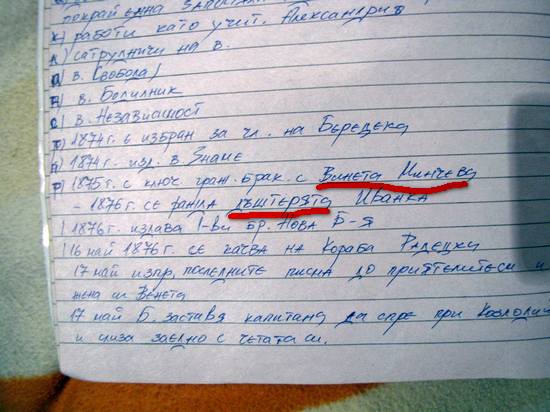 к) работи като учит. Александрия
л) сатрудничи на в.
в. Свобода)
в. Болилник
в. Независност
1874г. е избран за чл. на Бърedека
1874г. изд. в. Знаме
1875г. сключ. граж. брак. с Винета Минчева
- 1876г. се ражда дъщерята Иванка
1876г. издава I-ви бр. Нова Б-я
16 май 1876г. се качва на Кораба Радецки
17 май изпр. последните писма до приятелите си и
жена си Венета
17 май Б. заставя капитана да спре при Козлодуй
и слиза заедно с четата си.